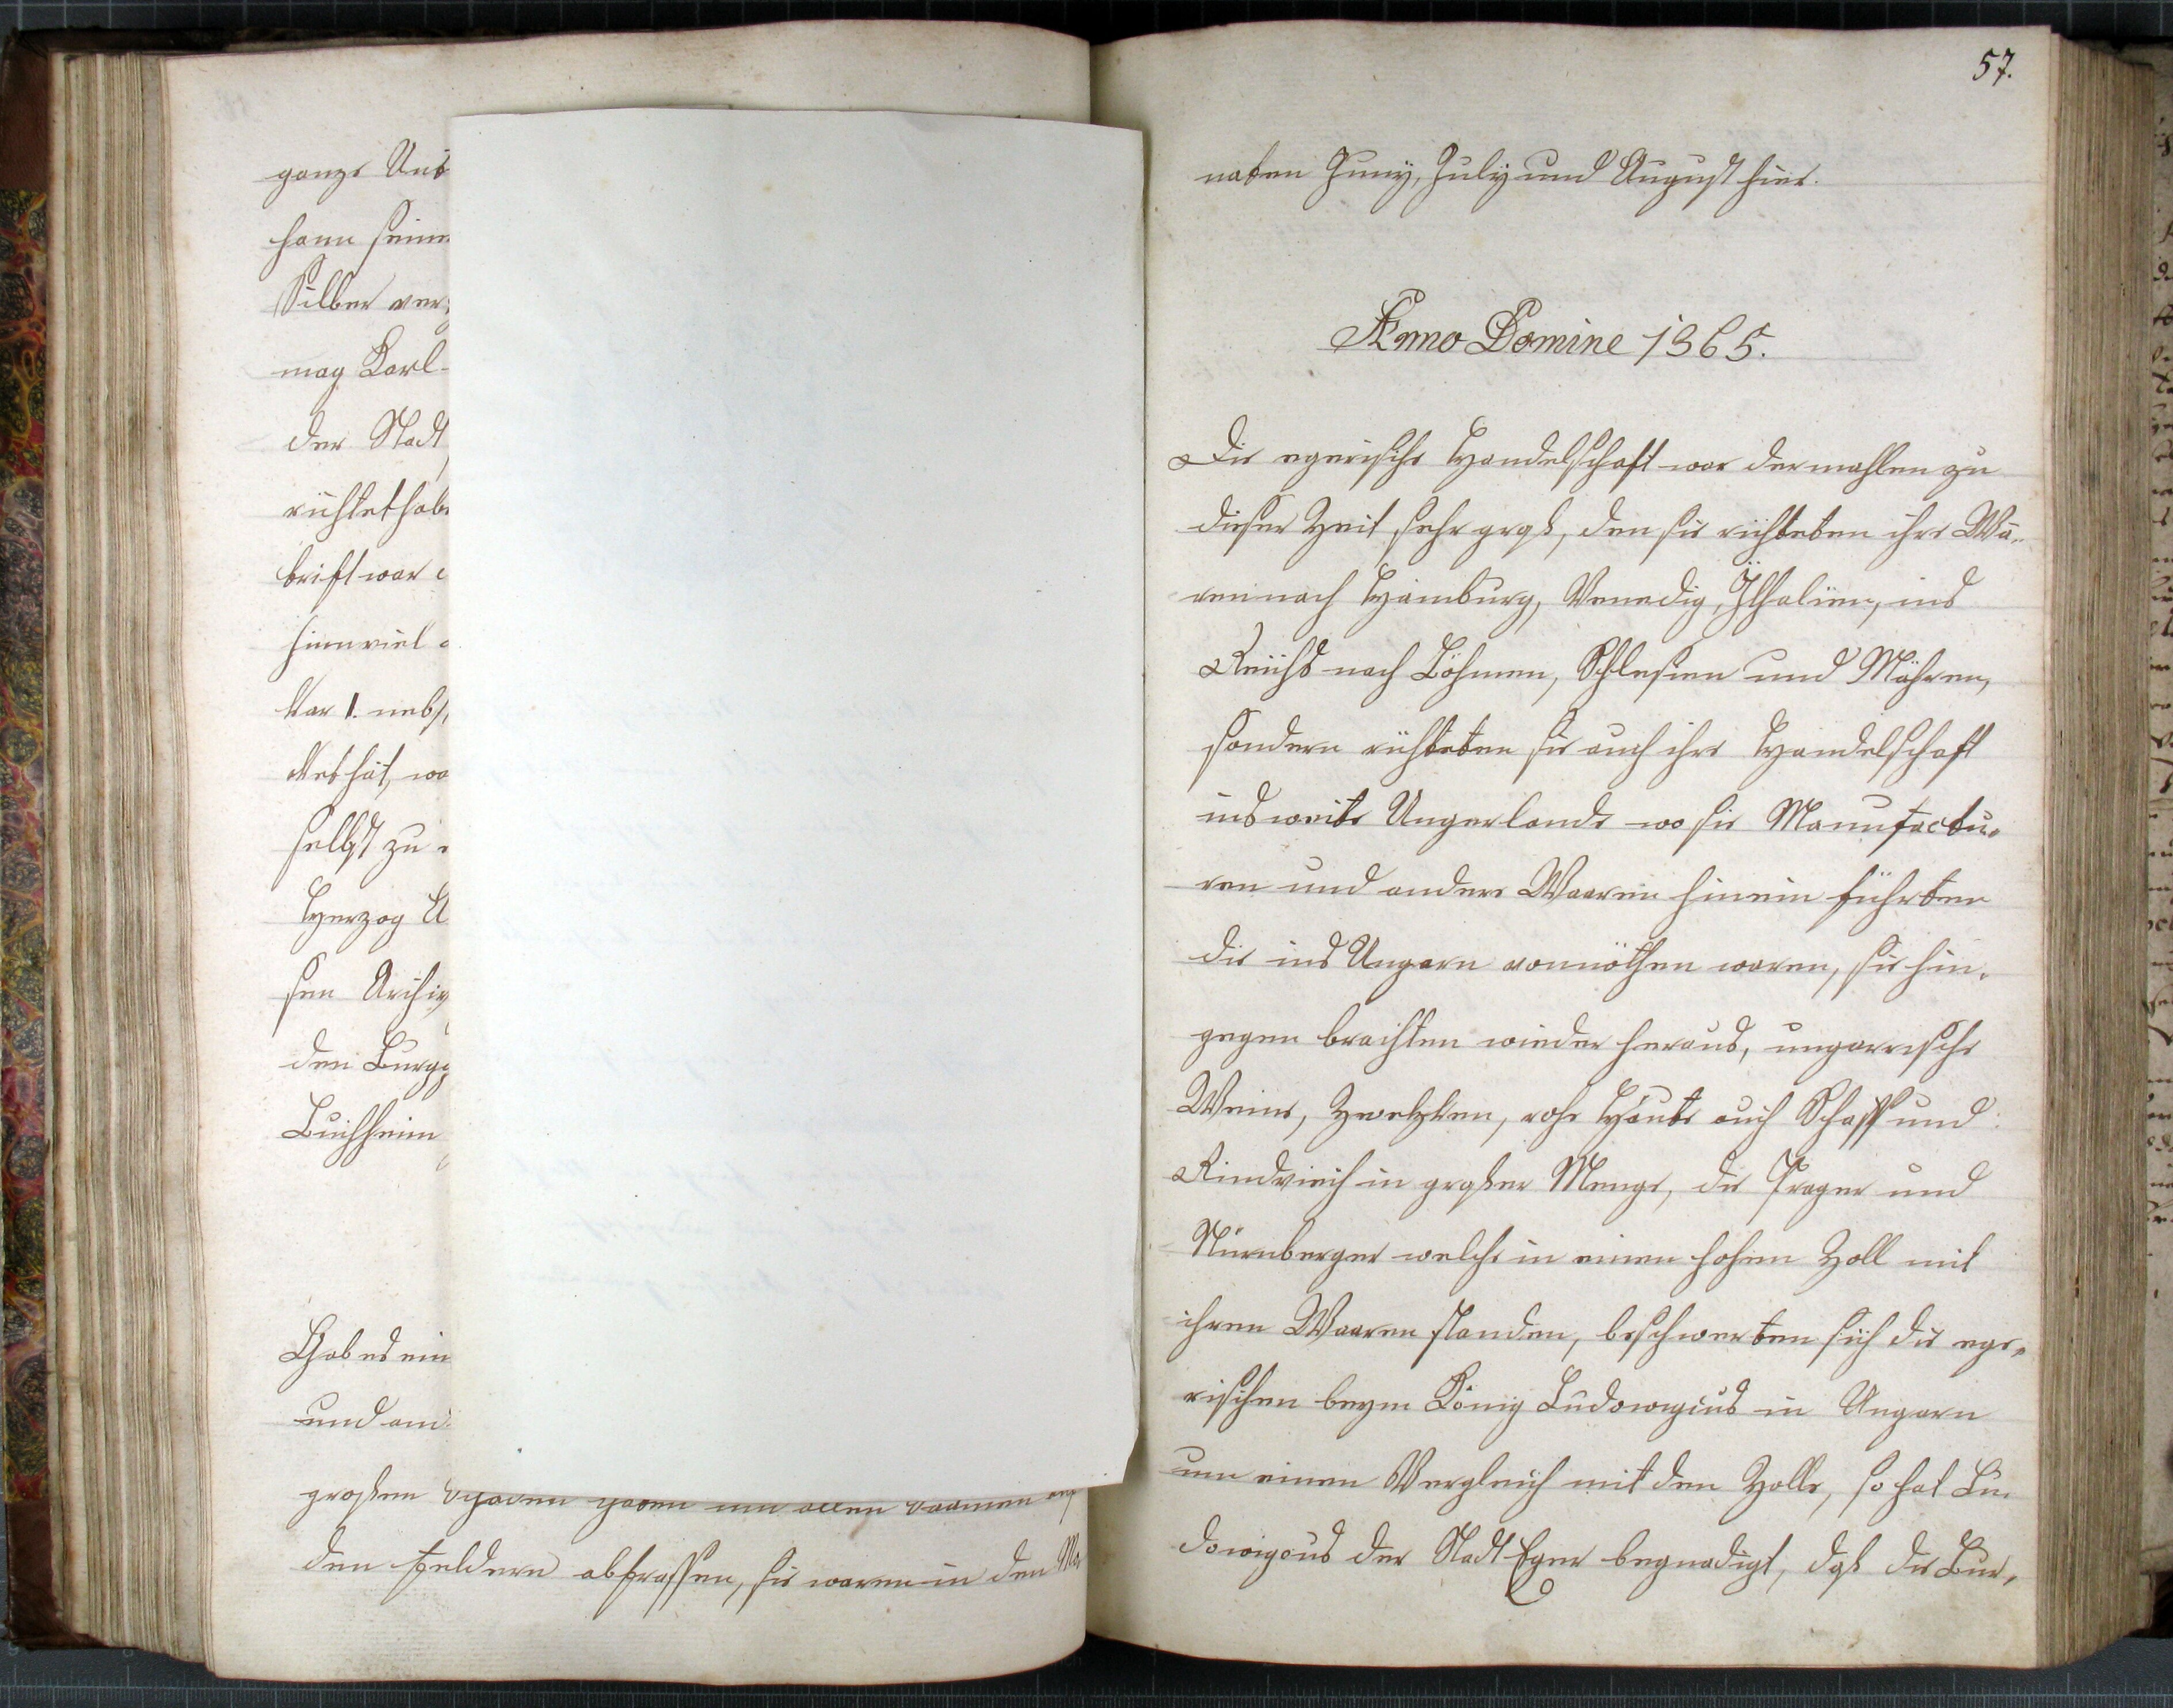 ganze Unt
hann seine
Silber ver
mag Karl
der Stadt
richtet habe
brift war
hinn viel
Kar 1. nebst
det hat, wo
selbst zu
Herzog A
sen Archiv
den Burgg
Buchheim
Gab es ein
und and
großen Schaden haben um allen Saamen auf
den Feldern abfrassen, sie waren in den Mo
57.
naten Juny, July und August hier.
Anno Domine 1365.
Die egerische Handelschaft war dermahlen zu
dieser Zeit sehr groß, den sie richteten ihre Wa„
ren nach Hamburg, Venedig, Ithalien, ins
Reichs nach Böhmen, Schlesien und Mähren,
sondern richteten sie auch ihre Handelschaft
ins weite Ungerlande wo sie Manufactu„
ren und andere Waaren hinein führten
die ins Ungarn vonnöthen waren, sie hin„
gegen brachten wieder heraus, ungarrische
Weine, Zwetzken, rohe Häute auch Schaff und
Rindvieh in großer Menge, die Prager und
Nürnberger welche in einen hohen Zoll mit
ihren Waaren standen, beschwerten sich die ege„
rischen beym König Ludowigius in Ungarn
um einen Vergleich mit den Zolle, so hat Lu„
dowigous der Stadt Eger begnadigt, daß die Bur„